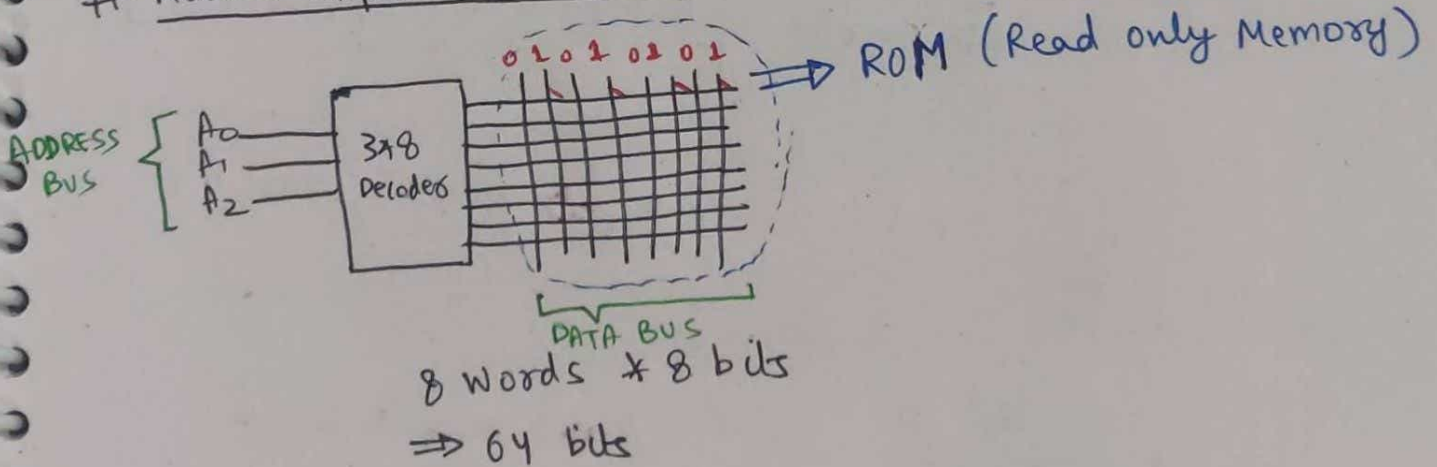 0 1 0 1 0 1 0 1
ROM (Read only Memory)
ADDRESS
BUS
A0
A1
A2
3*8
Decoder
DATA BUS
8 words * 8 bits
⇒ 64 bits